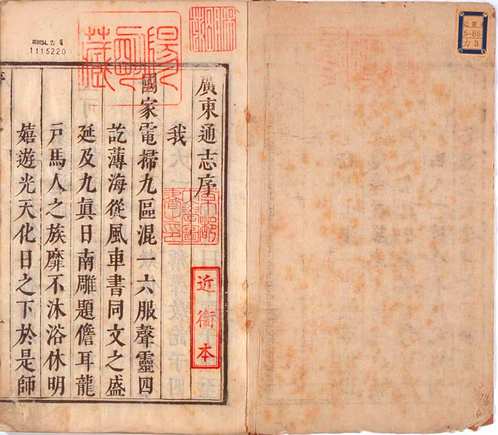 廣東通志序
我
國家電掃九區混一六服聲靈四
訖薄海從風車書同文之盛
延及九眞日南雕題儋耳龍
戸馬人之族靡不沐浴休明
嬉遊光天化日之下於是師
近衞本
1115220